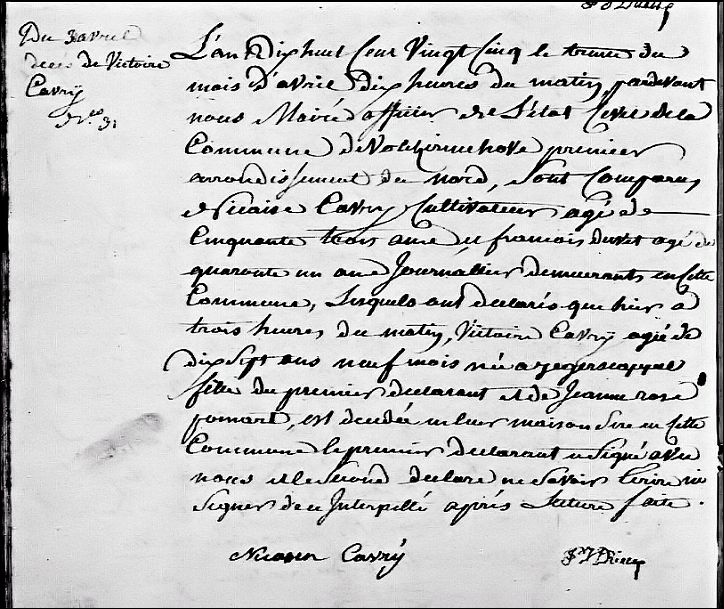 Du 3 avril
déces de Victoire
Cavry
N.º 31
L'an Dix huit Cent Vingt Cinq le trois du
mois D'avril Dix heures du matin, pardevant
nous Maire officier de L'état Civil de la
Commune de Volckerinckhove premier
arrondissement du nord, sont Comparus
Nicaise Cavry Cultivateur agé de
Cinquante trois ans et francois duvet agé de
quarante un ans Journallier demeurants en Cette
Commune, Lesquels ont déclarés que hier a
trois heures du matin, Victoire Cavry agée de
dix Sept ans neuf mois née a Zegerscappel
fille du premier déclarant et de Jeanne rose
fomart, est décédée en leur maison Sise en Cette
Commune le premier déclarant a Signé avec
nous et le Second déclare ne Savoir Ecrire ni
Signer de ce Interpellé après Lecture faite.
Nicaise Cavry